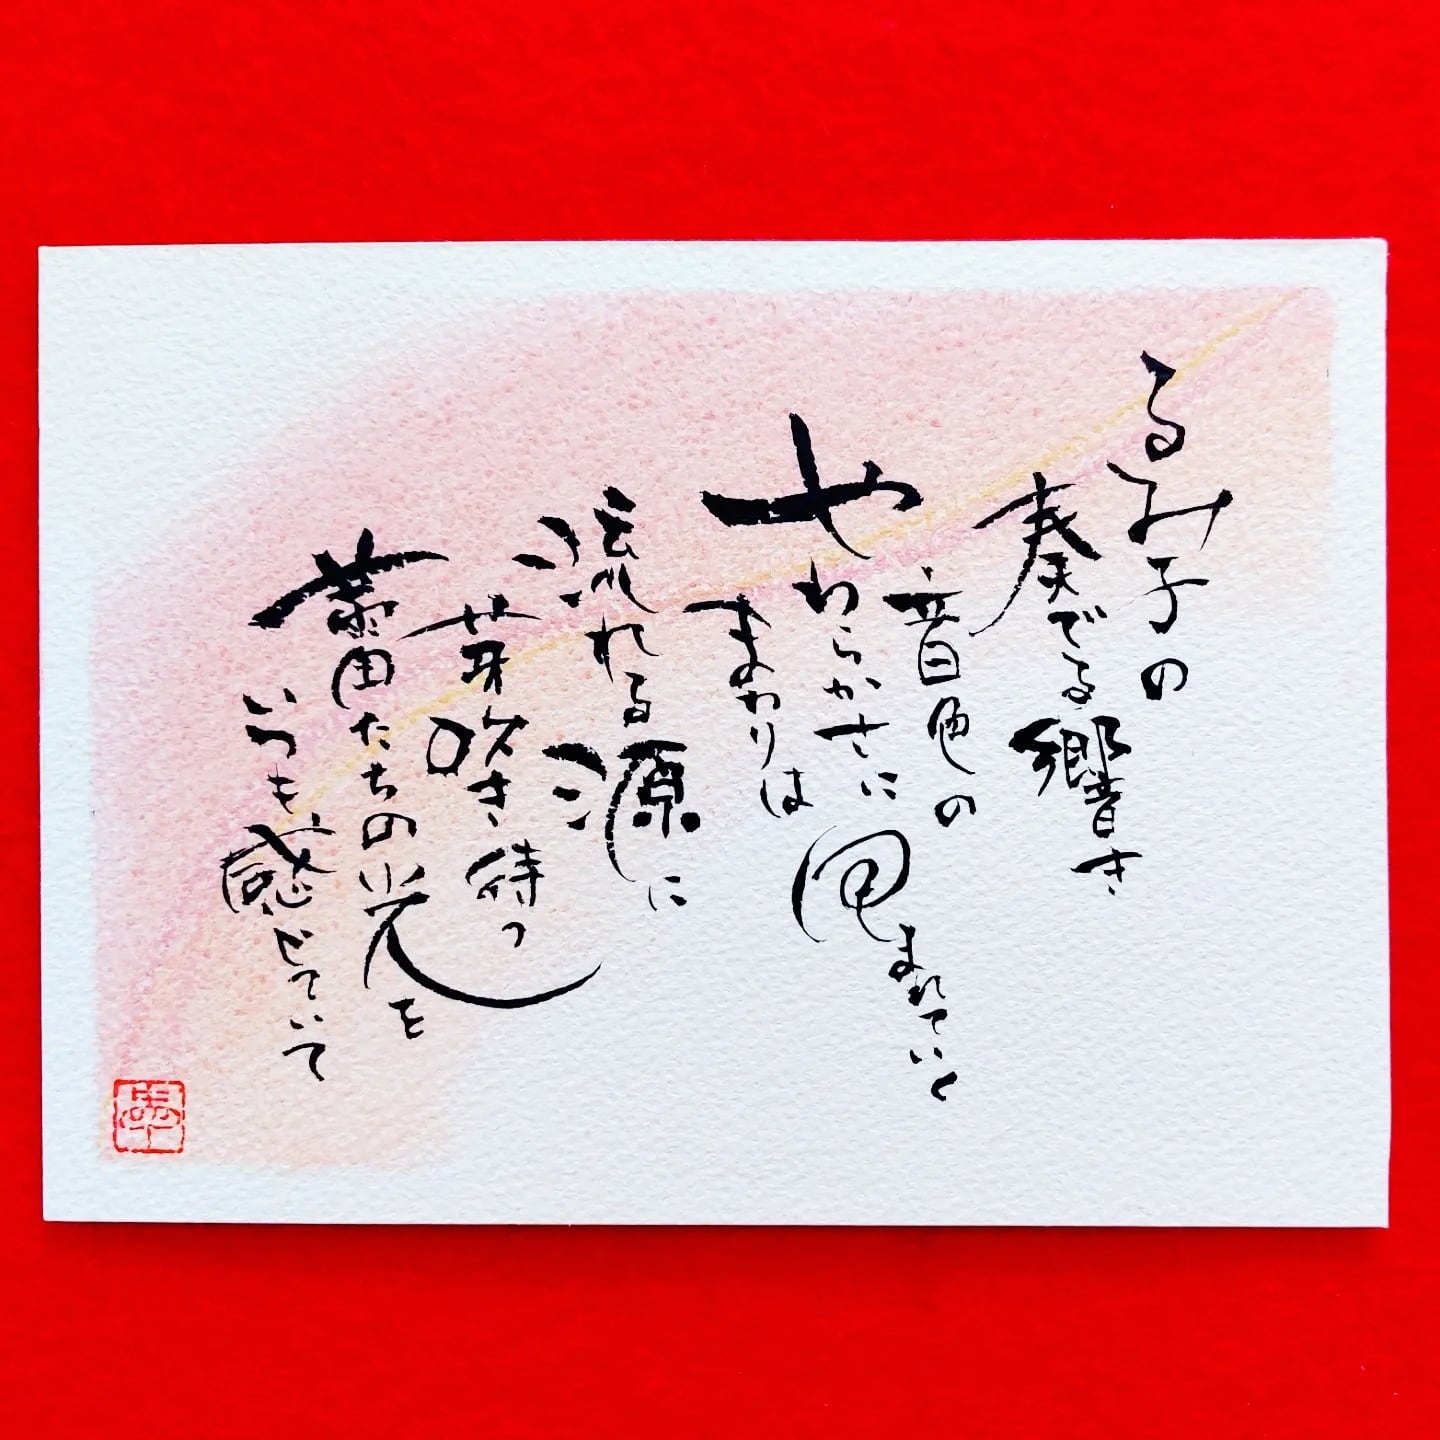 るみ子の
奏でる響き
音色の
やわらかさに囲まれていと
まわりは
流れる源に
芽吹き待つ
蕾たちの光を
いつも感じていて